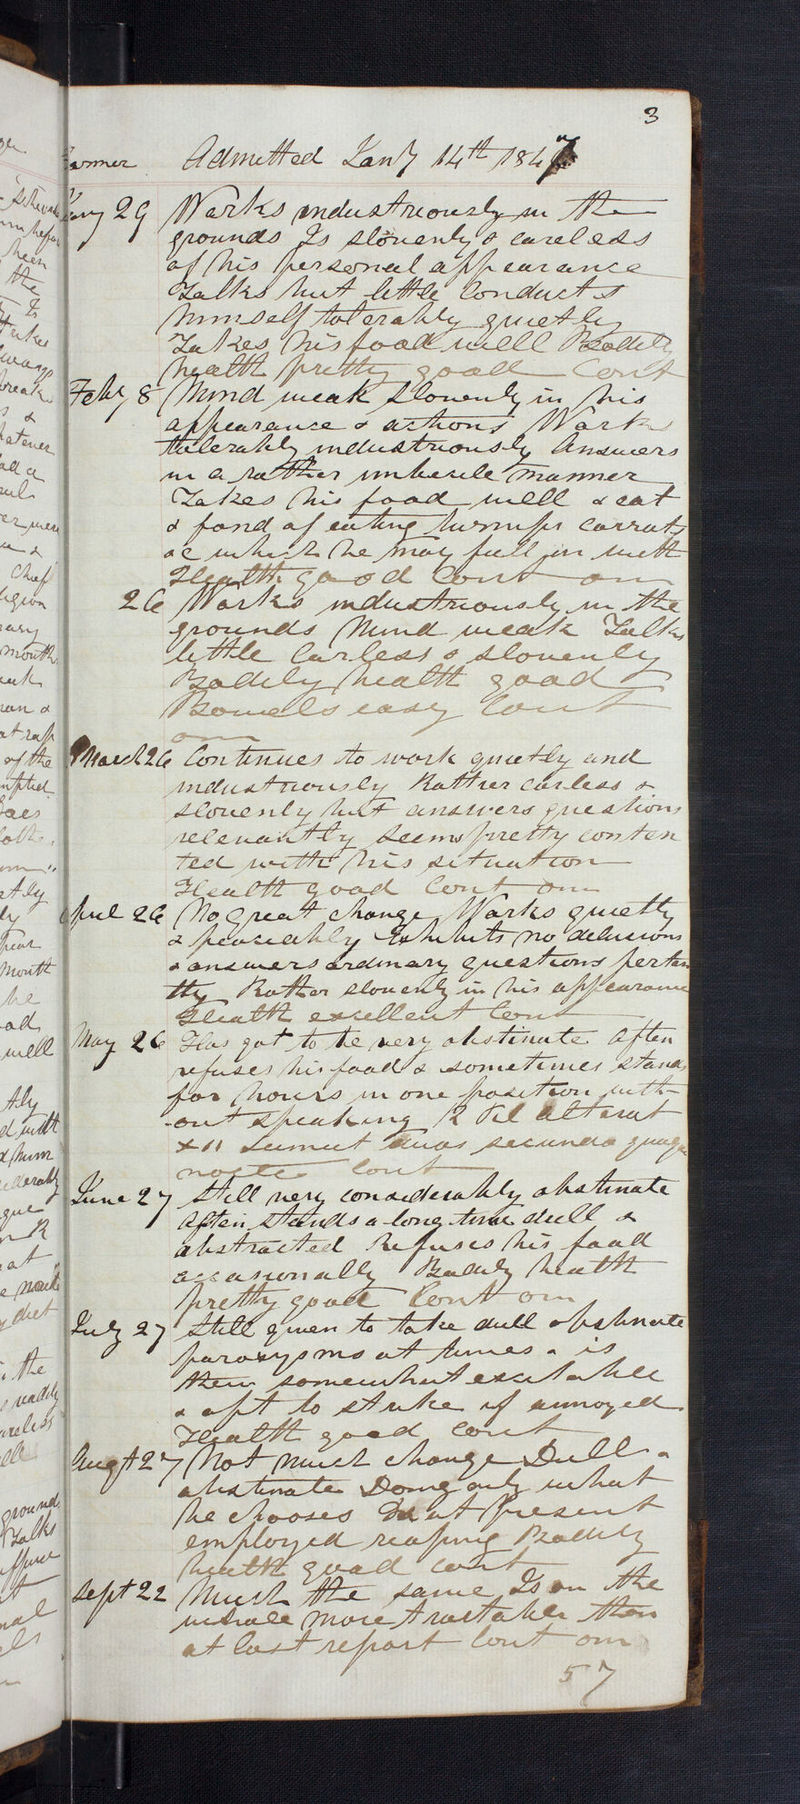 3
Farmer Admitted Jany 14th 1847
Jany 29 Works industriously in the
grounds Is slovenly & careless
of his personal appearance
Talks but little Conducts
himself tolerably quietly
Takes his food well Bodily
health pretty good Cont
Feby 8 Mind weak Slovenly in his
appearance & actions Works
tolerably industriously Answers
in a rather imbecile manner
Takes his food well & eat
& fond of eating turnips carrots
&c which he may fall in with
Health good Cont om
26 Works industriously in the
grounds Mind weak Talks
little Carless & slovenly
Bodily health good
Bowels easy Cont
om
March 26 Continues to work quietly and
industriously Rather carless &
slovenly but answers questions
relevantly Seems pretty conten
ted with his situation
Health good Cont om
April 26 No great change Works quietly
& peaceably Exhibits no delusions
& answers ordinary questions pertan
tly Rather slovenly in his appearance
Health excellent Cont
May 26 Has got to be very obstinate Often
refuses his food & sometimes stands
for hours in one position with-
-out speaking R Pil alterat
Sumat duas secunda quaque
nocte Cont
June 27 Still very considerably obstinate
Often stands a long time dull &
abstracted Refuses his food
occasionally Bodily health
pretty good Cont om
July 27 Still given to take dull obstinate
paroxysms at times & is
then somewhat excitable
& apt to strike if annoyed
Health good Cont
Augt 27 Not much change Dull &
obstinate Doing only what
he chooses Is at present
employed reaping Bodily
health good Cont
Sept 22 Much the same Is on the
whole more tractable than
at last report Cont om
57